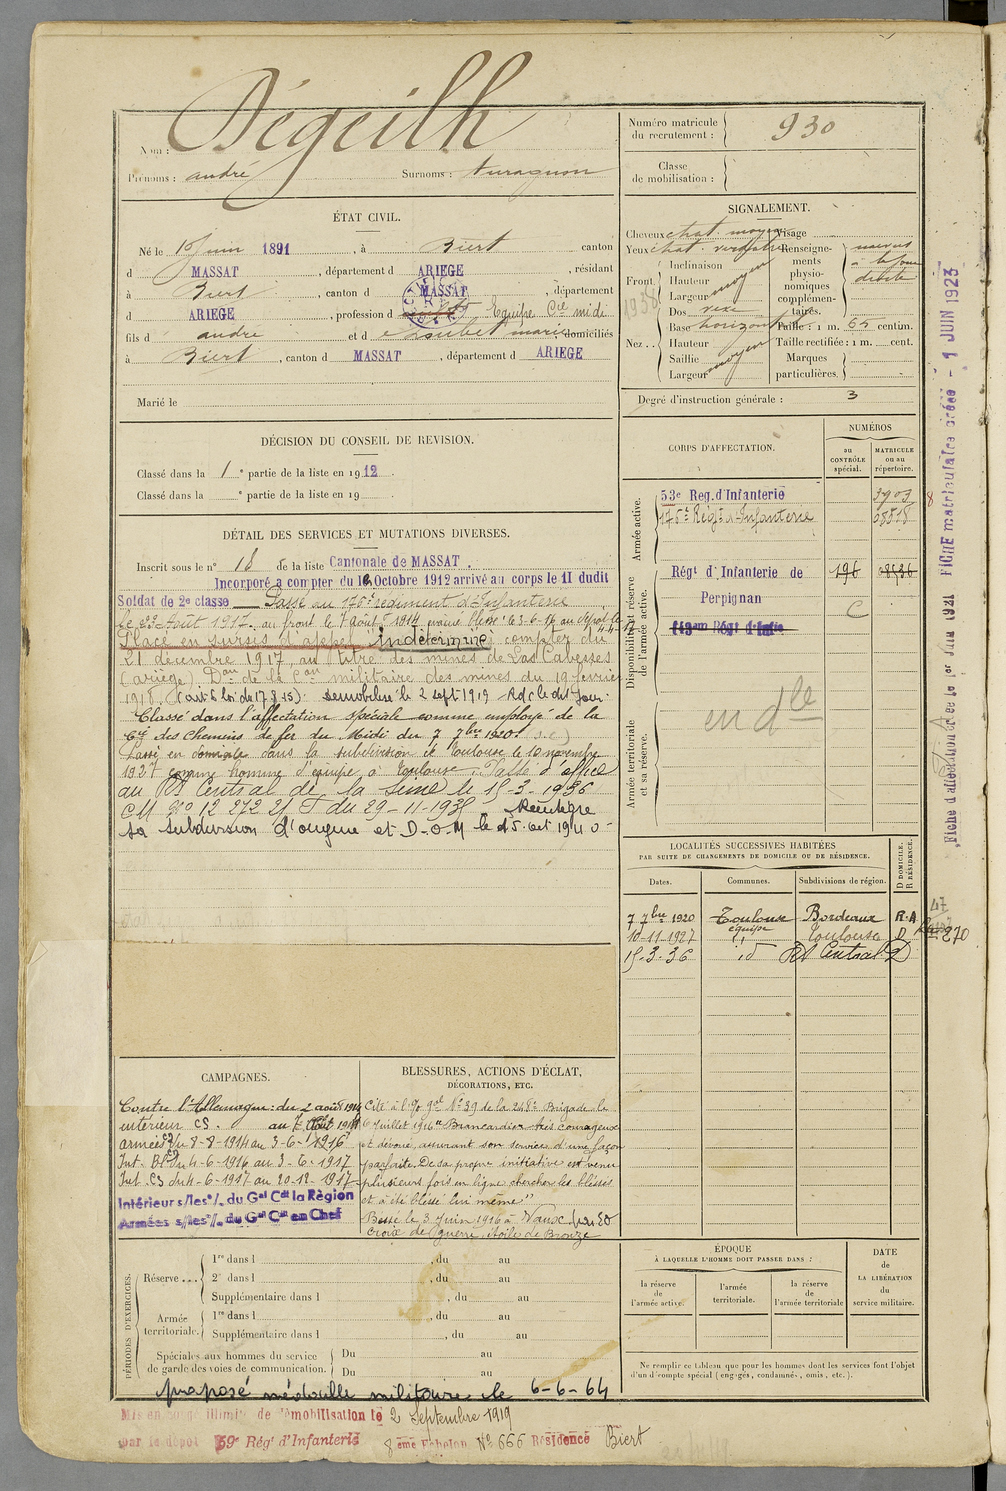 Nom : Dégeilh
Prénoms : andré Surnoms :
Numéro matricule du recrutement : 930
Classe de mobilisation :
ÉTAT CIVIL.
Né le Juin 1891, à Biert canton
d MASSAT, département d ARIEGE, résidant
à Biert, canton d MASSAT, département
d ARIEGE, profession d Equipe Cie midi
fils d andré et d marie domiciliés
à Biert, canton d MASSAT, département d ARIEGE
Marié le
SIGNALEMENT.
Cheveux chat. moyen Visage
Yeux chat. verdatre Renseignements physionomiques complémentaires.
Front Inclinaison
Hauteur moyen
Largeur
1938
Nez Dos
Base horizont Taille : 1 m. 65 centim.
Hauteur Taille rectifiée : 1 m. cent.
Saillie moyen Marques particulières.
Largeur
Degré d'instruction générale : 3
DÉCISION DU CONSEIL DE REVISION.
Classé dans la 1e partie de la liste en 1912.
Classé dans la e partie de la liste en 19
DÉTAIL DES SERVICES ET MUTATIONS DIVERSES.
Inscrit sous le n° 18 de la liste Cantonale de MASSAT.
Incorporé a compter du 10 Octobre 1912 arrivé au corps le 11 dudit
Soldat de 2e classe Passé au 176e régiment d'Infanterie
Placé en sursis d'appel indéterminé à compter du
21 décembre 1917, au titre des mines de Las Cabesses
(ariège). Don de la Con militaire des mines du 19 février
1918. Démobilisé le 2 sept 1919
Classé dans l'affectation spéciale comme employé de la
Cie des Chemins de fer du Midi du 7 7bre 1920 (S.C)
Passé en domicile dans la subdivision de Toulouse le 10 novembre
1927 comme homme d'équipe à Toulouse. Passé d'office
au Rt Central de la Seine le 15-3-1936
CM N° 12 272 21 du 29-11-1935 Réintègre
sa subdivision d'origine et D.O.M le 15 Oct 1940
CORPS D'AFFECTATION.
NUMÉROS
au CONTRÔLE spécial.
MATRICULE ou au répertoire.
Armée active.
53e Reg. d'Infanterie 3903
176e Régt d'Infanterie
Disponibilité et réserve de l'armée active.
Régt d'Infanterie de 196
Perpignan C
Armée territoriale et sa réserve.
en dle
Fiche d'affectation créée le 1er Juin 1921 FICHE matriculaire créée - 1 JUIN 1923
LOCALITÉS SUCCESSIVES HABITÉES
PAR SUITE DE CHANGEMENTS DE DOMICILE OU DE RÉSIDENCE.
Dates. Communes. Subdivisions de région. D DOMICILE. R RÉSIDENCE.
7 7bre 1920 Toulouse Bordeaux R.A
10-11-1927 equipe Toulouse D
15-3-36 id Rt Central D
47
270
CAMPAGNES.
Contre l'Allemagne : du 2 août 1914
intérieur CS. au 7 Août 1914
armées du 8-8-1914 au 3-6-1916
Int. Bl du 4-6-1916 au 3-6-1917
Int. CS du 4-6-1917 au 20-12-1917
Intérieur s/les °/. du Gal Cdt la Région
Armées s/les °/. du Gal Cdt en Chef
BLESSURES, ACTIONS D'ÉCLAT,
DÉCORATIONS, ETC.
Cité à l'o/ gal N° 39 de la 248e Brigade le
6 Juillet 1916 "Brancardier très courageux
et dévoué, assurant son service d'une façon
parfaite. De sa propre initiative est venu
plusieurs fois en ligne chercher les blessés
et a été blessé lui même"
Blessé le 3 Juin 1916 à Vaux
Croix de guerre, étoile de Bronze
PÉRIODES D'EXERCICES.
Réserve 1re dans l , du au
2e dans l , du au
Supplémentaire dans l , du au
Armée territoriale. 1re dans l , du au
Supplémentaire dans l , du au
Spéciales aux hommes du service de garde des voies de communication. Du au
Du au
ÉPOQUE
À LAQUELLE L'HOMME DOIT PASSER DANS :
la réserve de l'armée active.
l'armée territoriale.
la réserve de l'armée territoriale
DATE de LA LIBÉRATION du service militaire.
Ne remplir ce tableau que pour les hommes dont les services font l'objet
d'un décompte spécial (engagés, condamnés, omis, etc.).
proposé médaille militaire le 6-6-64
Mis en congé illimité de démobilisation le 2 Septembre 1919
par le dépôt 59e Régt d'Infanterie 8eme Echelon N° 666 Résidence Biert